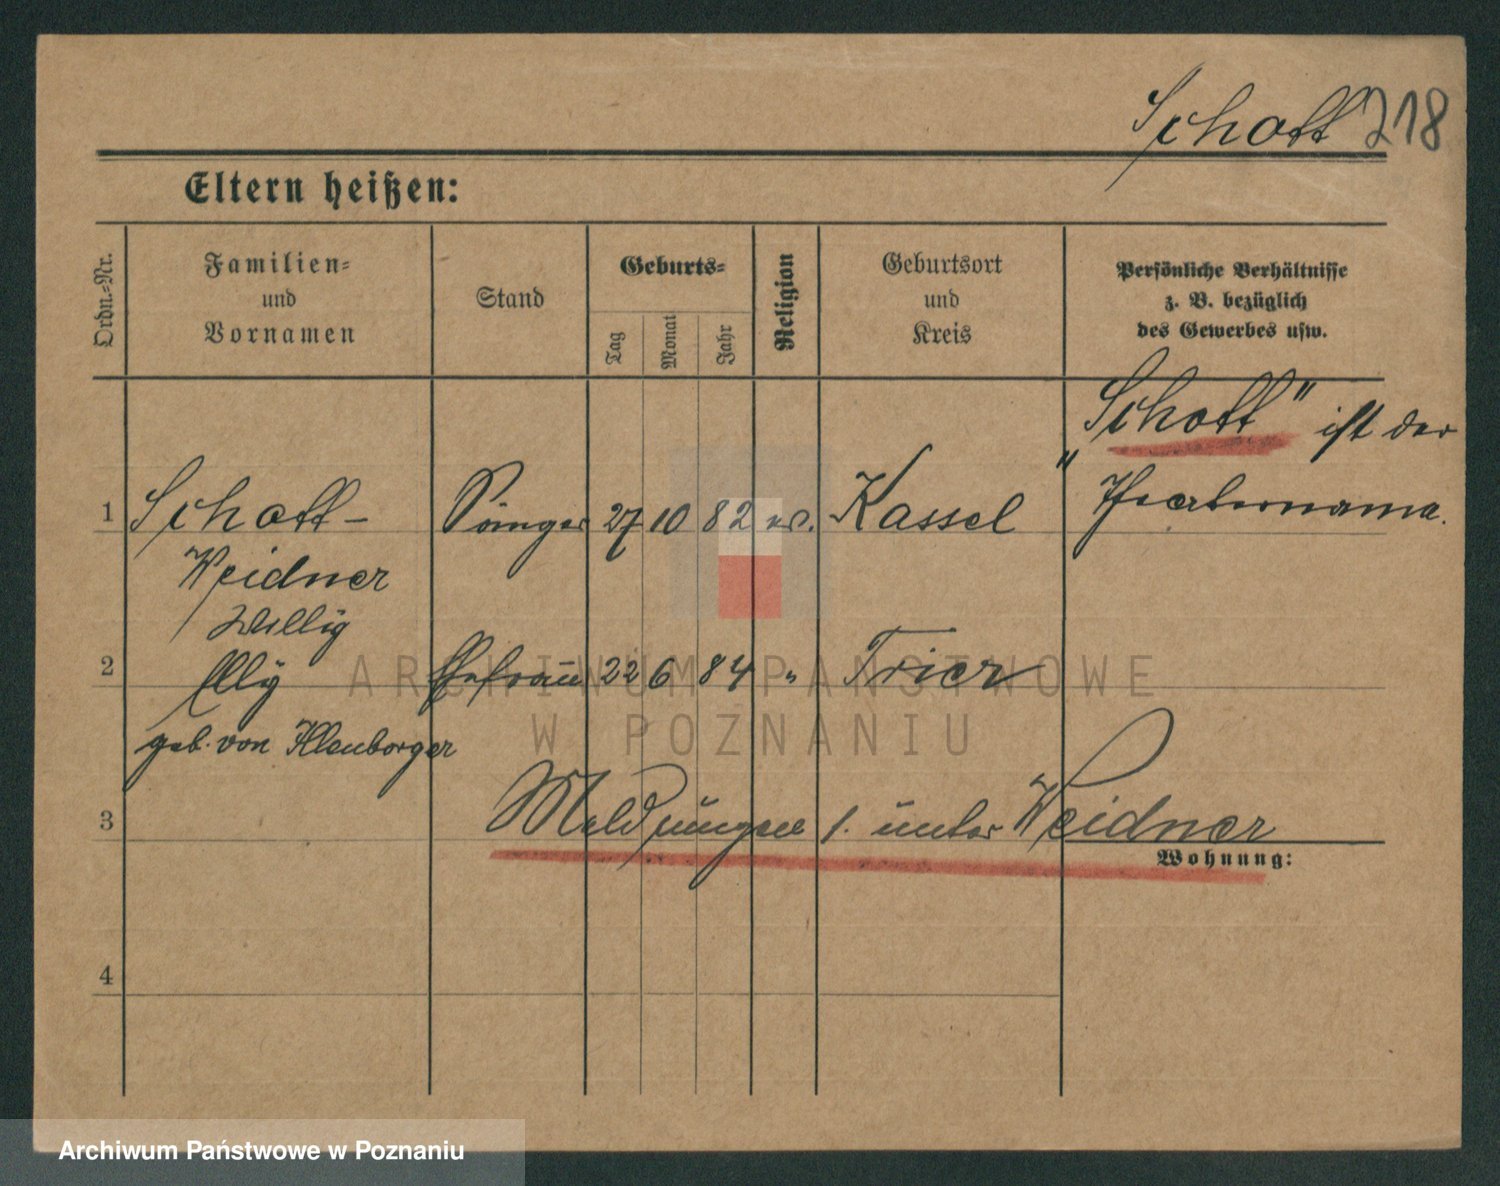 Schott 218
Eltern heißen:
Ordn.-Nr.
Familien-
und
Vornamen
Stand
Geburts-
Tag
Monat
Jahr
Religion
Geburtsort
und
Kreis
Persönliche Verhältnisse
z. B. bezüglich
des Gewerbes usw.
"Schott" ist der
Theatername.
1 Schott- Sänger 27 10 82 ev. Kassel
Weidner
Willig
2 Elly Ehefrau 22 6 84 " Trier
geb. von
3 Meldungen s. unter Weidner
Wohnung:
4
ARCHIWUM PAŃSTWOWE
W POZNANIU
Archiwum Państwowe w Poznaniu